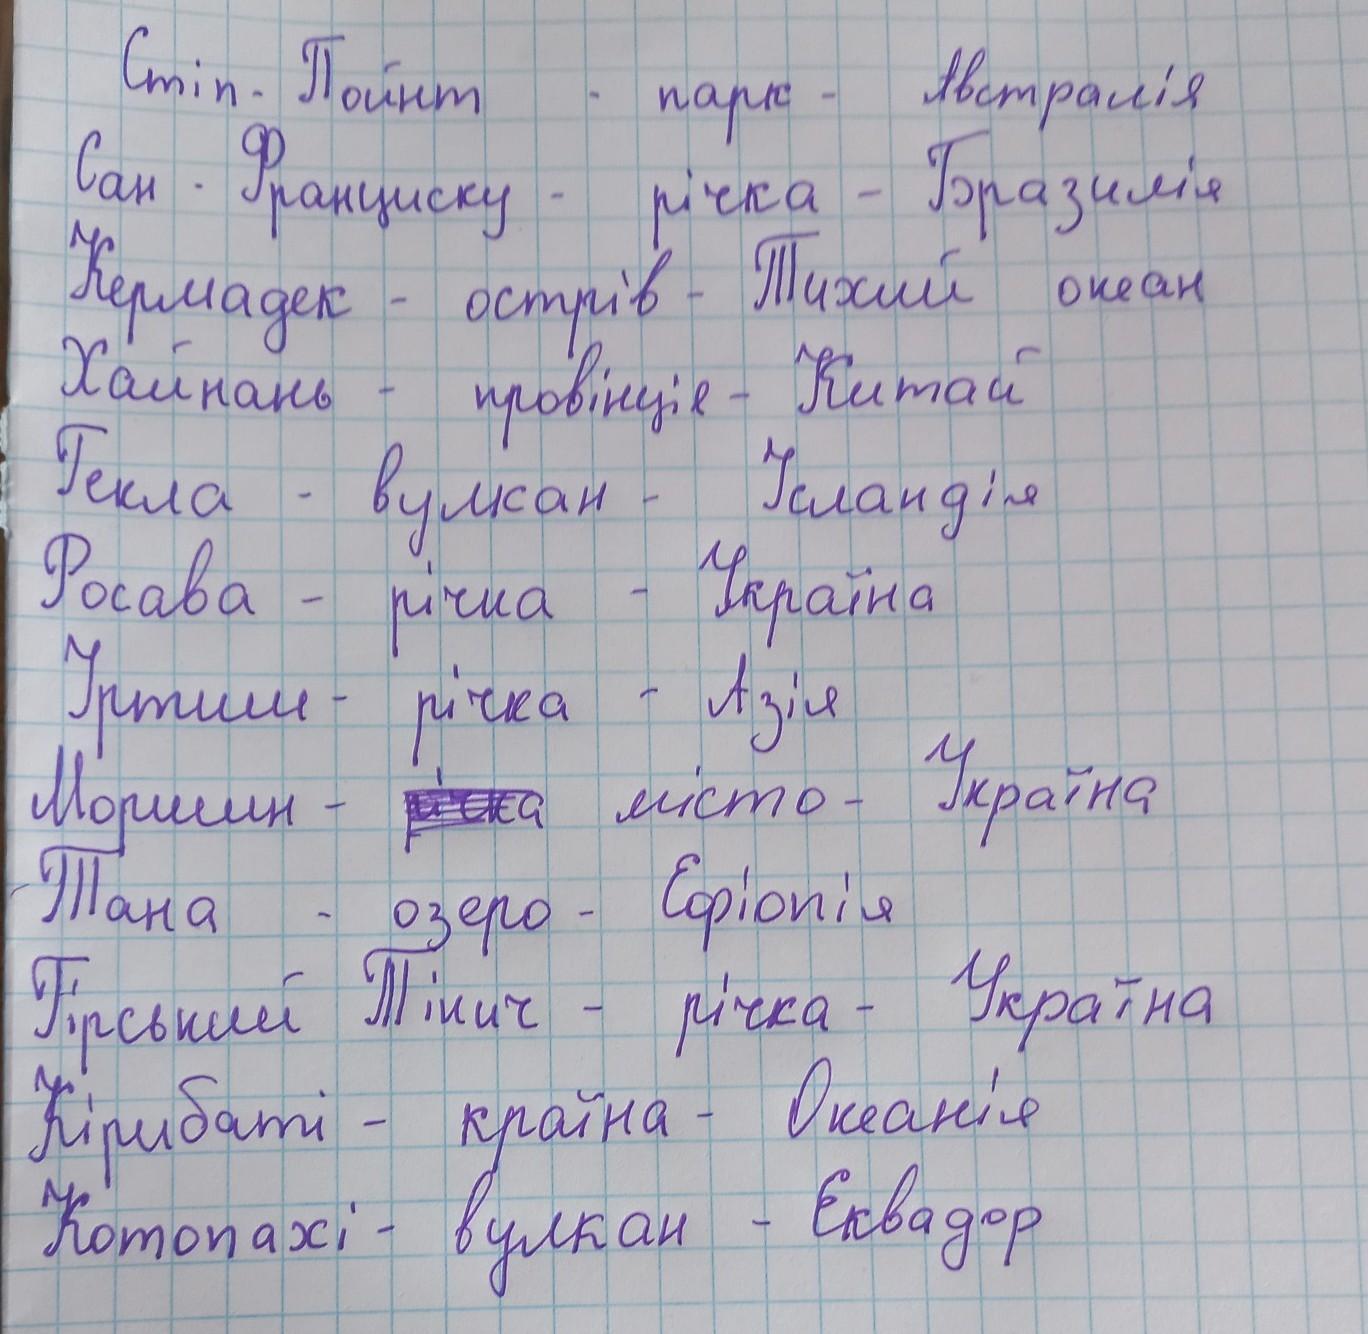 Стіп - Пойнт - парк - Австралія
Сан - Франциску - річка - Бразилія
Кермадек - острів - Тихий океан
Хайнань - провінція - Китай
Гекла - вулкан - Ісландія
Росава - річка - Україна
Іртиш - річка - Азія
Моршин - річка місто - Україна
Тана - озеро - Ефіопія
Гірський Тікич - річка - Україна
Кірибаті - країна - Океанія
Котопахі - вулкан - Еквадор